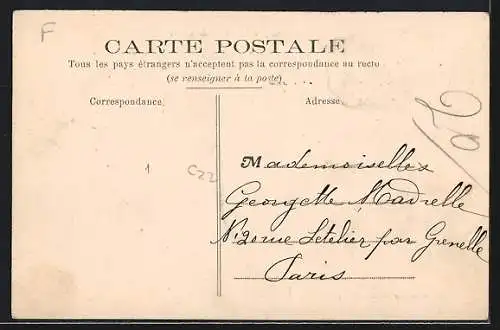 F
CARTE POSTALE
Tous les pays étrangers n'acceptent pas la correspondance au recto
(se renseigner à la poste)
Correspondance.
Adresse
20
1
C22
Mademoiselles
Georgette Madrelle
N°20 rue Letelier par Grenelle
Paris